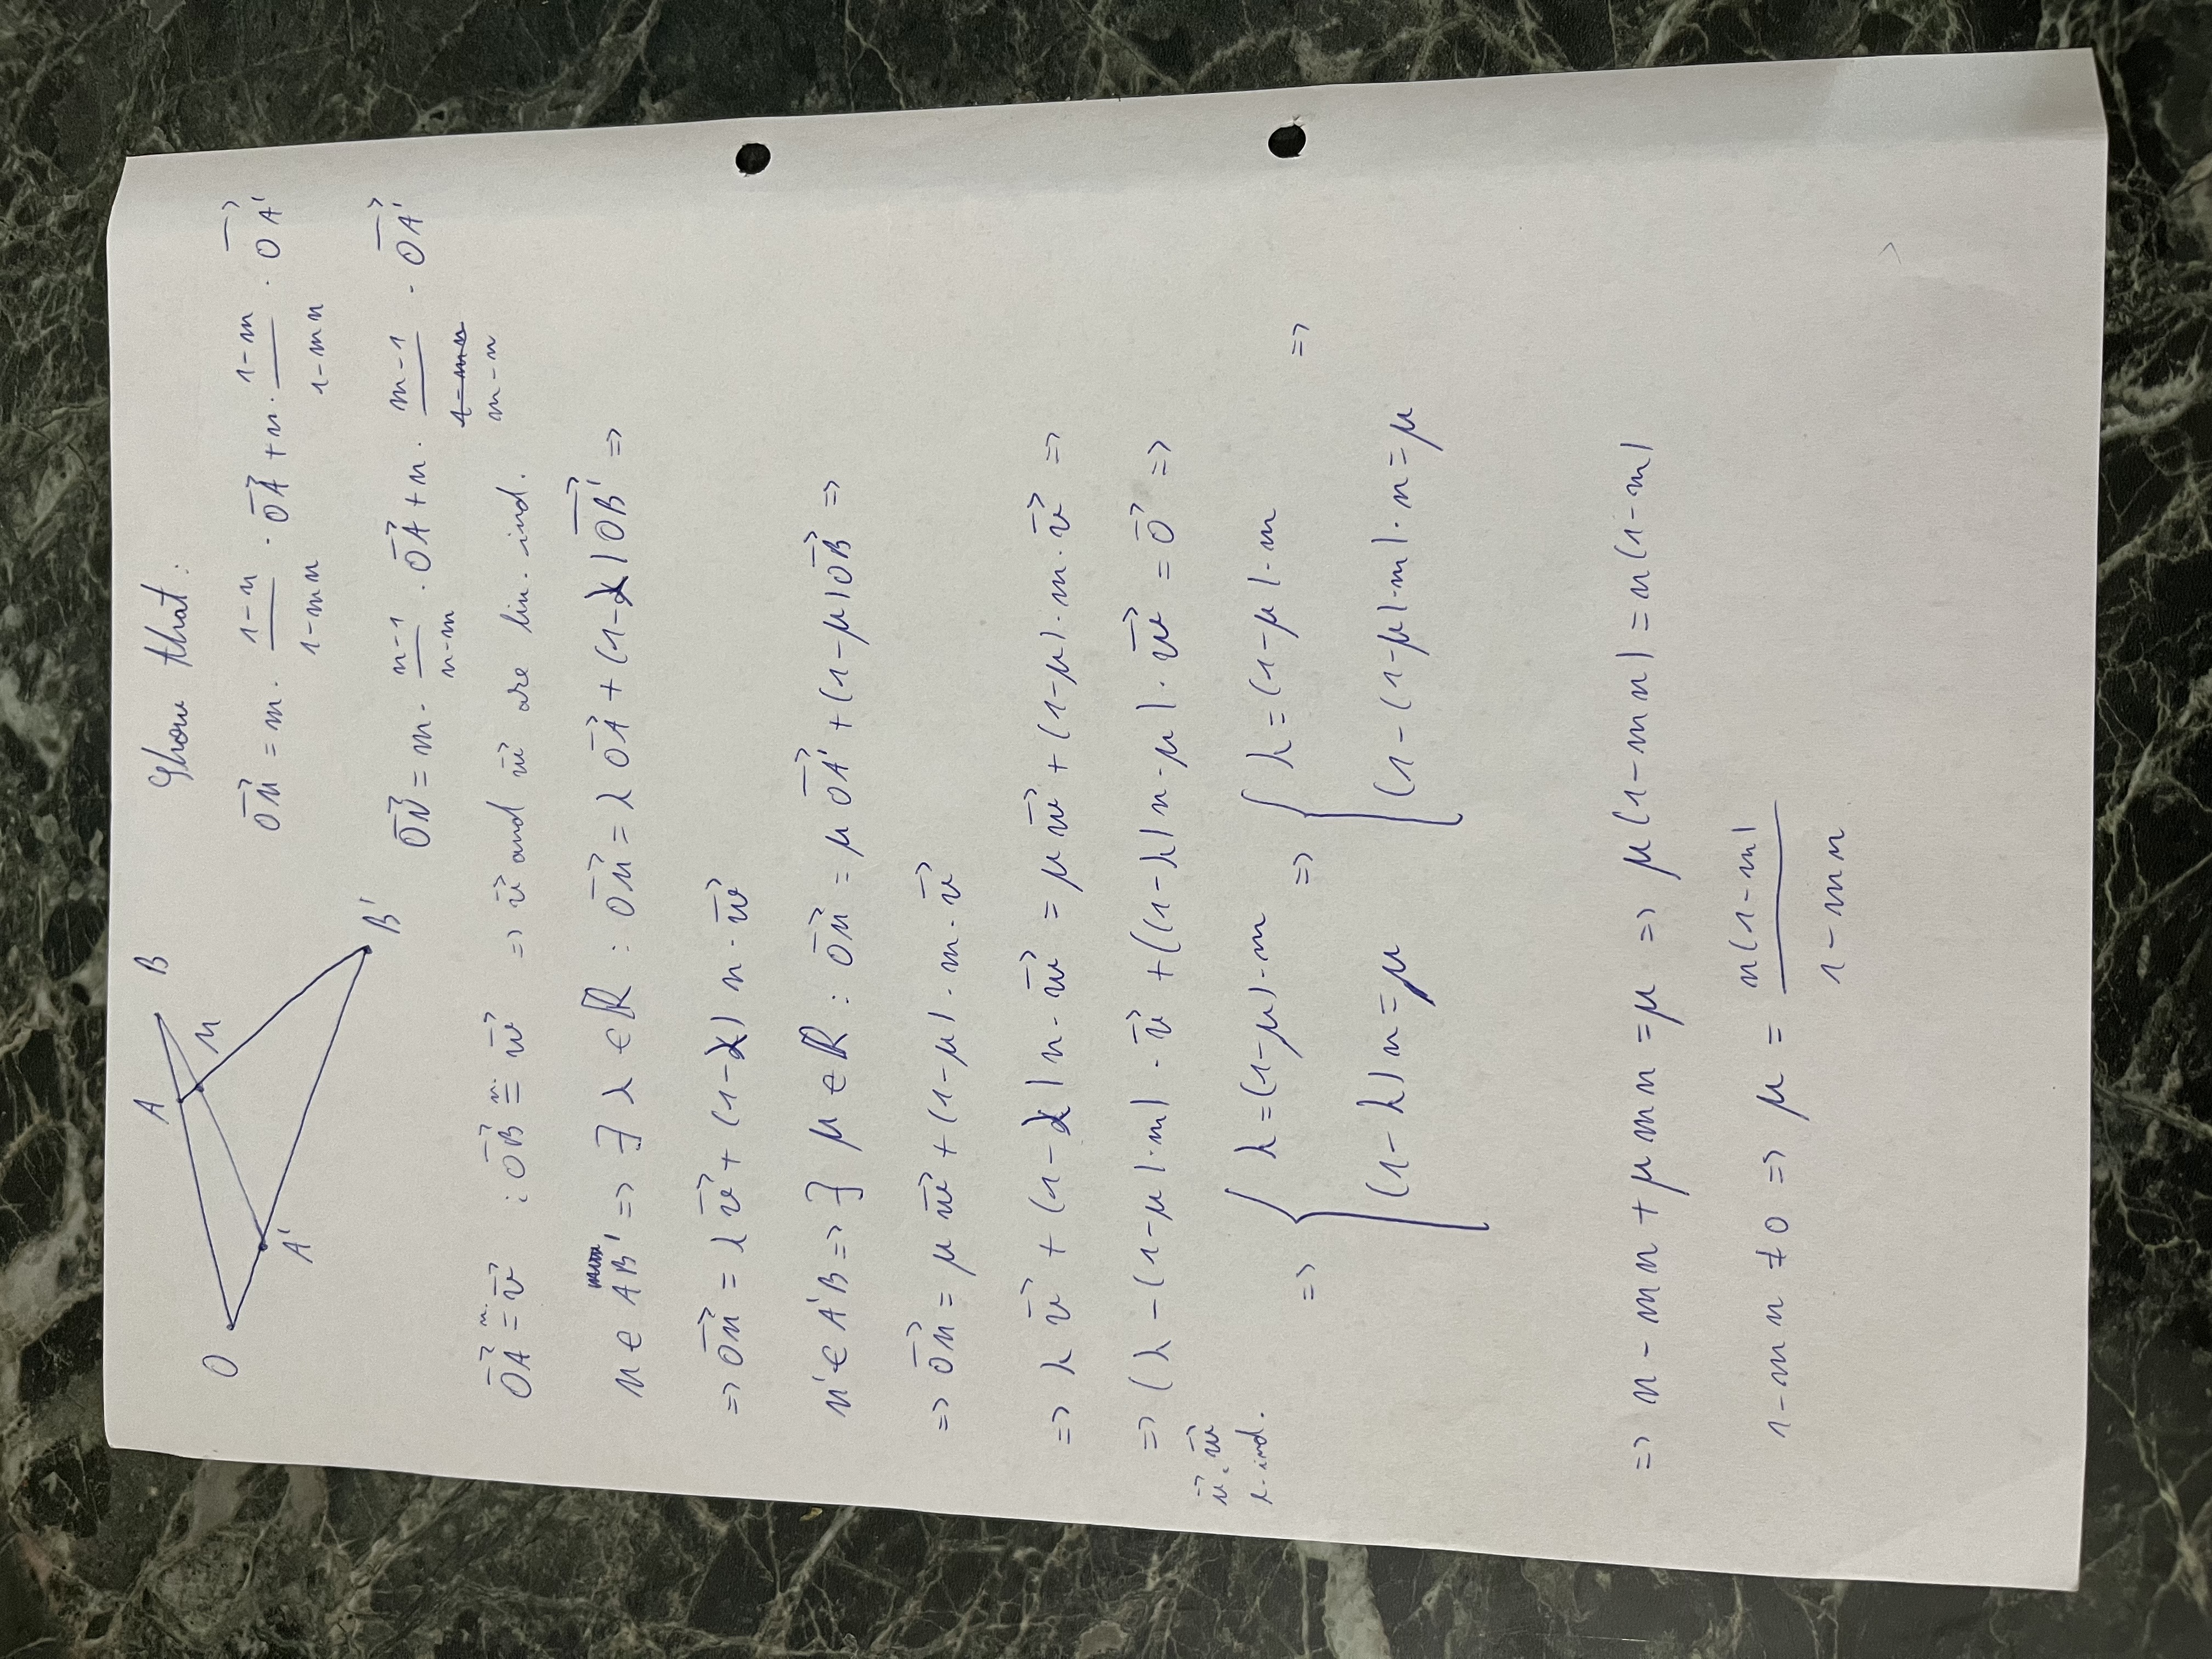 A B
O M
A'
B'
Show that:
$\overrightarrow{OM} = m \cdot \frac{1-n}{1-mn} \cdot \overrightarrow{OA} + n \cdot \frac{1-m}{1-mn} \cdot \overrightarrow{OA'}$
$\overrightarrow{ON} = m \cdot \frac{n-1}{n-m} \cdot \overrightarrow{OA} + n \cdot \frac{m-1}{m-n} \cdot \overrightarrow{OA'}$
$\overrightarrow{OA} \overset{n.}{=} \overrightarrow{v} ; \overrightarrow{OB} \overset{n.}{=} \overrightarrow{w} \Rightarrow \overrightarrow{v}$ and $\overrightarrow{w}$ are lin. ind.
$M \in AB' \Rightarrow \exists \lambda \in \mathbb{R} : \overrightarrow{OM} = \lambda \overrightarrow{OA} + (1-\lambda) \overrightarrow{OB'} \Rightarrow$
$\Rightarrow \overrightarrow{OM} = \lambda \overrightarrow{v} + (1-\lambda) n \cdot \overrightarrow{w}$
$M' \in A'B \Rightarrow \exists \mu \in \mathbb{R} : \overrightarrow{OM} = \mu \overrightarrow{OA'} + (1-\mu) \overrightarrow{OB} \Rightarrow$
$\Rightarrow \overrightarrow{OM} = \mu \overrightarrow{w} + (1-\mu) \cdot m \cdot \overrightarrow{v}$
$\Rightarrow \lambda \overrightarrow{v} + (1-\lambda) n \cdot \overrightarrow{w} = \mu \overrightarrow{w} + (1-\mu) \cdot m \cdot \overrightarrow{v} \Rightarrow$
$\Rightarrow (\lambda - (1-\mu) \cdot m) \cdot \overrightarrow{v} + ((1-\lambda) n - \mu) \cdot \overrightarrow{w} = \overrightarrow{0} \Rightarrow$
$\overrightarrow{v}, \overrightarrow{w}$
l. ind.
$\Rightarrow \begin{cases} \lambda = (1-\mu) \cdot m \\ (1-\lambda) n = \mu \end{cases} \Rightarrow \begin{cases} \lambda = (1-\mu) \cdot m \\ (1-(1-\mu) \cdot m) \cdot n = \mu \end{cases} \Rightarrow$
$\Rightarrow n - mn + \mu mn = \mu \Rightarrow \mu (1-mn) = n(1-m)$
$1-mn \neq 0 \Rightarrow \mu = \frac{n(1-m)}{1-mn}$